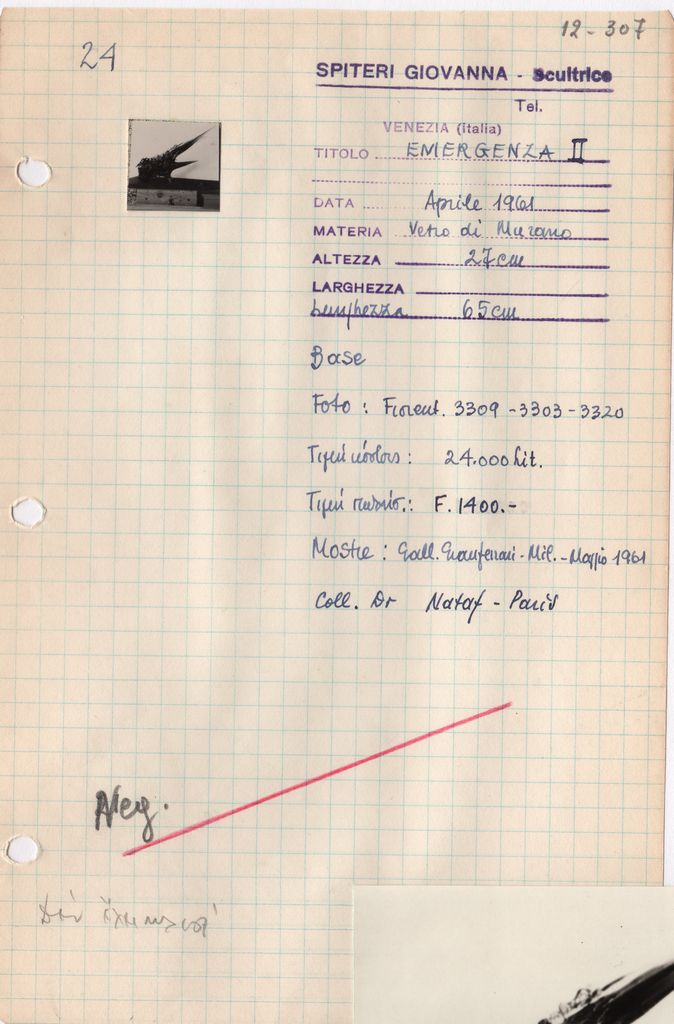 12-307
24
SPITERI GIOVANNA - Scultrice
Tel.
VENEZIA (italia)
TITOLO EMERGENZA II
DATA Aprile 1961
MATERIA Vetro di Murano
ALTEZZA 27cm
LARGHEZZA
Lunghezza 65cm
Base
Foto : Fiorent. 3309 - 3303 - 3320
Τιμή κόστους : 24.000 Lit.
Τιμή : F. 1400.-
Mostre : Gall. Granferrari - Mil. - Maggio 1961
Coll. Dr Nataf - Paris
Neg.
Δέν